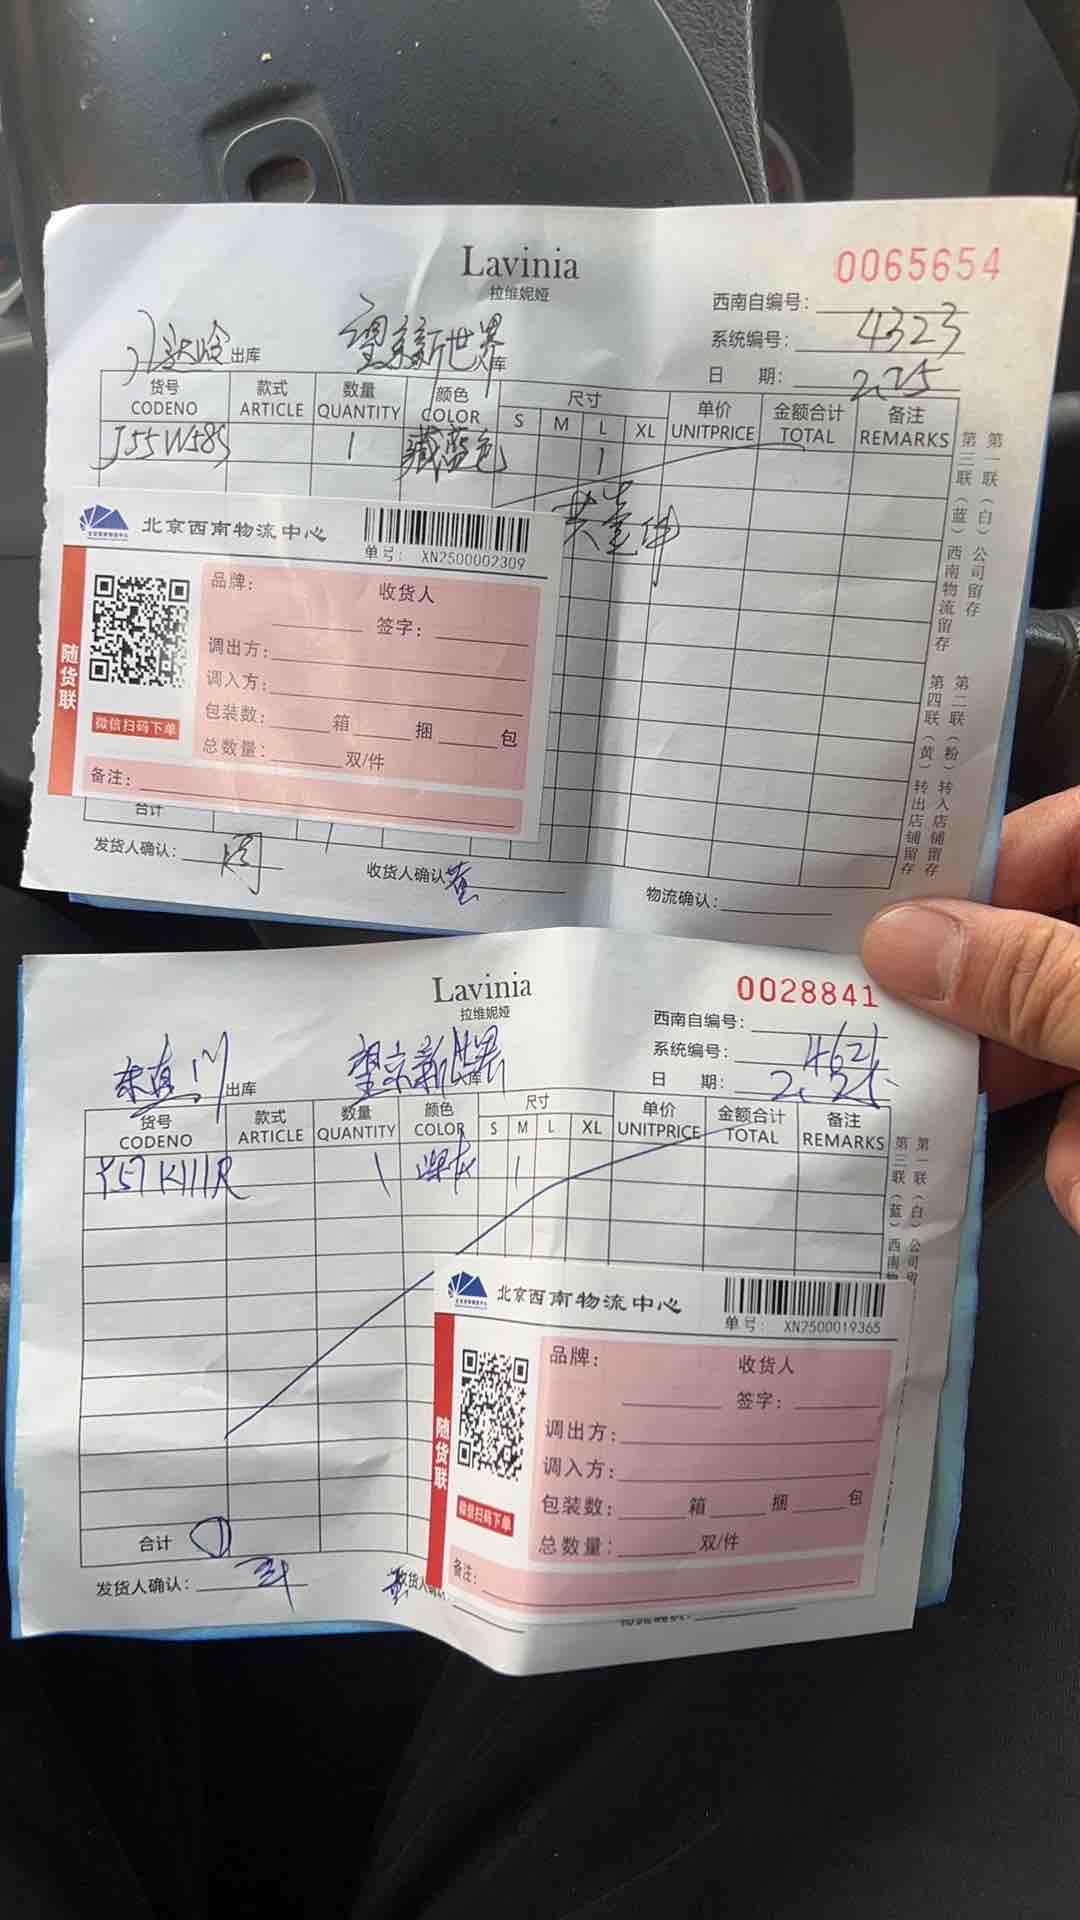 Lavinia
拉维妮娅
0065654
西南自编号:
系统编号: 4323
日 期: 2.25
出库 望京新世界 库
货号 款式 数量 颜色 尺寸 单价 金额合计 备注
CODENO ARTICLE QUANTITY COLOR S M L XL UNITPRICE TOTAL REMARKS
J55W585 1 藏蓝色 1
共壹件
第一联(白)公司留存
第二联(粉)转入店铺留存
第三联(蓝)西南物流留存
第四联(黄)转出店铺留存
北京西南物流中心
单号: XN2500002309
随货联
微信扫码下单
品牌: 收货人
签字:
调出方:
调入方:
包装数: 箱 捆 包
总数量: 双/件
备注:
合计 1
发货人确认: 收货人确认 董 物流确认:
Lavinia
拉维妮娅
0028841
西南自编号:
系统编号:
日 期: 2.25
东直门 出库 望京新世界 库
货号 款式 数量 颜色 尺寸 单价 金额合计 备注
CODENO ARTICLE QUANTITY COLOR S M L XL UNITPRICE TOTAL REMARKS
Y57K111R 1 1
第一联(白)公司
第三联(蓝)西南
北京西南物流中心
单号: XN2500019365
随货联
微信扫码下单
品牌: 收货人
签字:
调出方:
调入方:
包装数: 箱 捆 包
总数量: 双/件
备注:
合计 1
发货人确认: